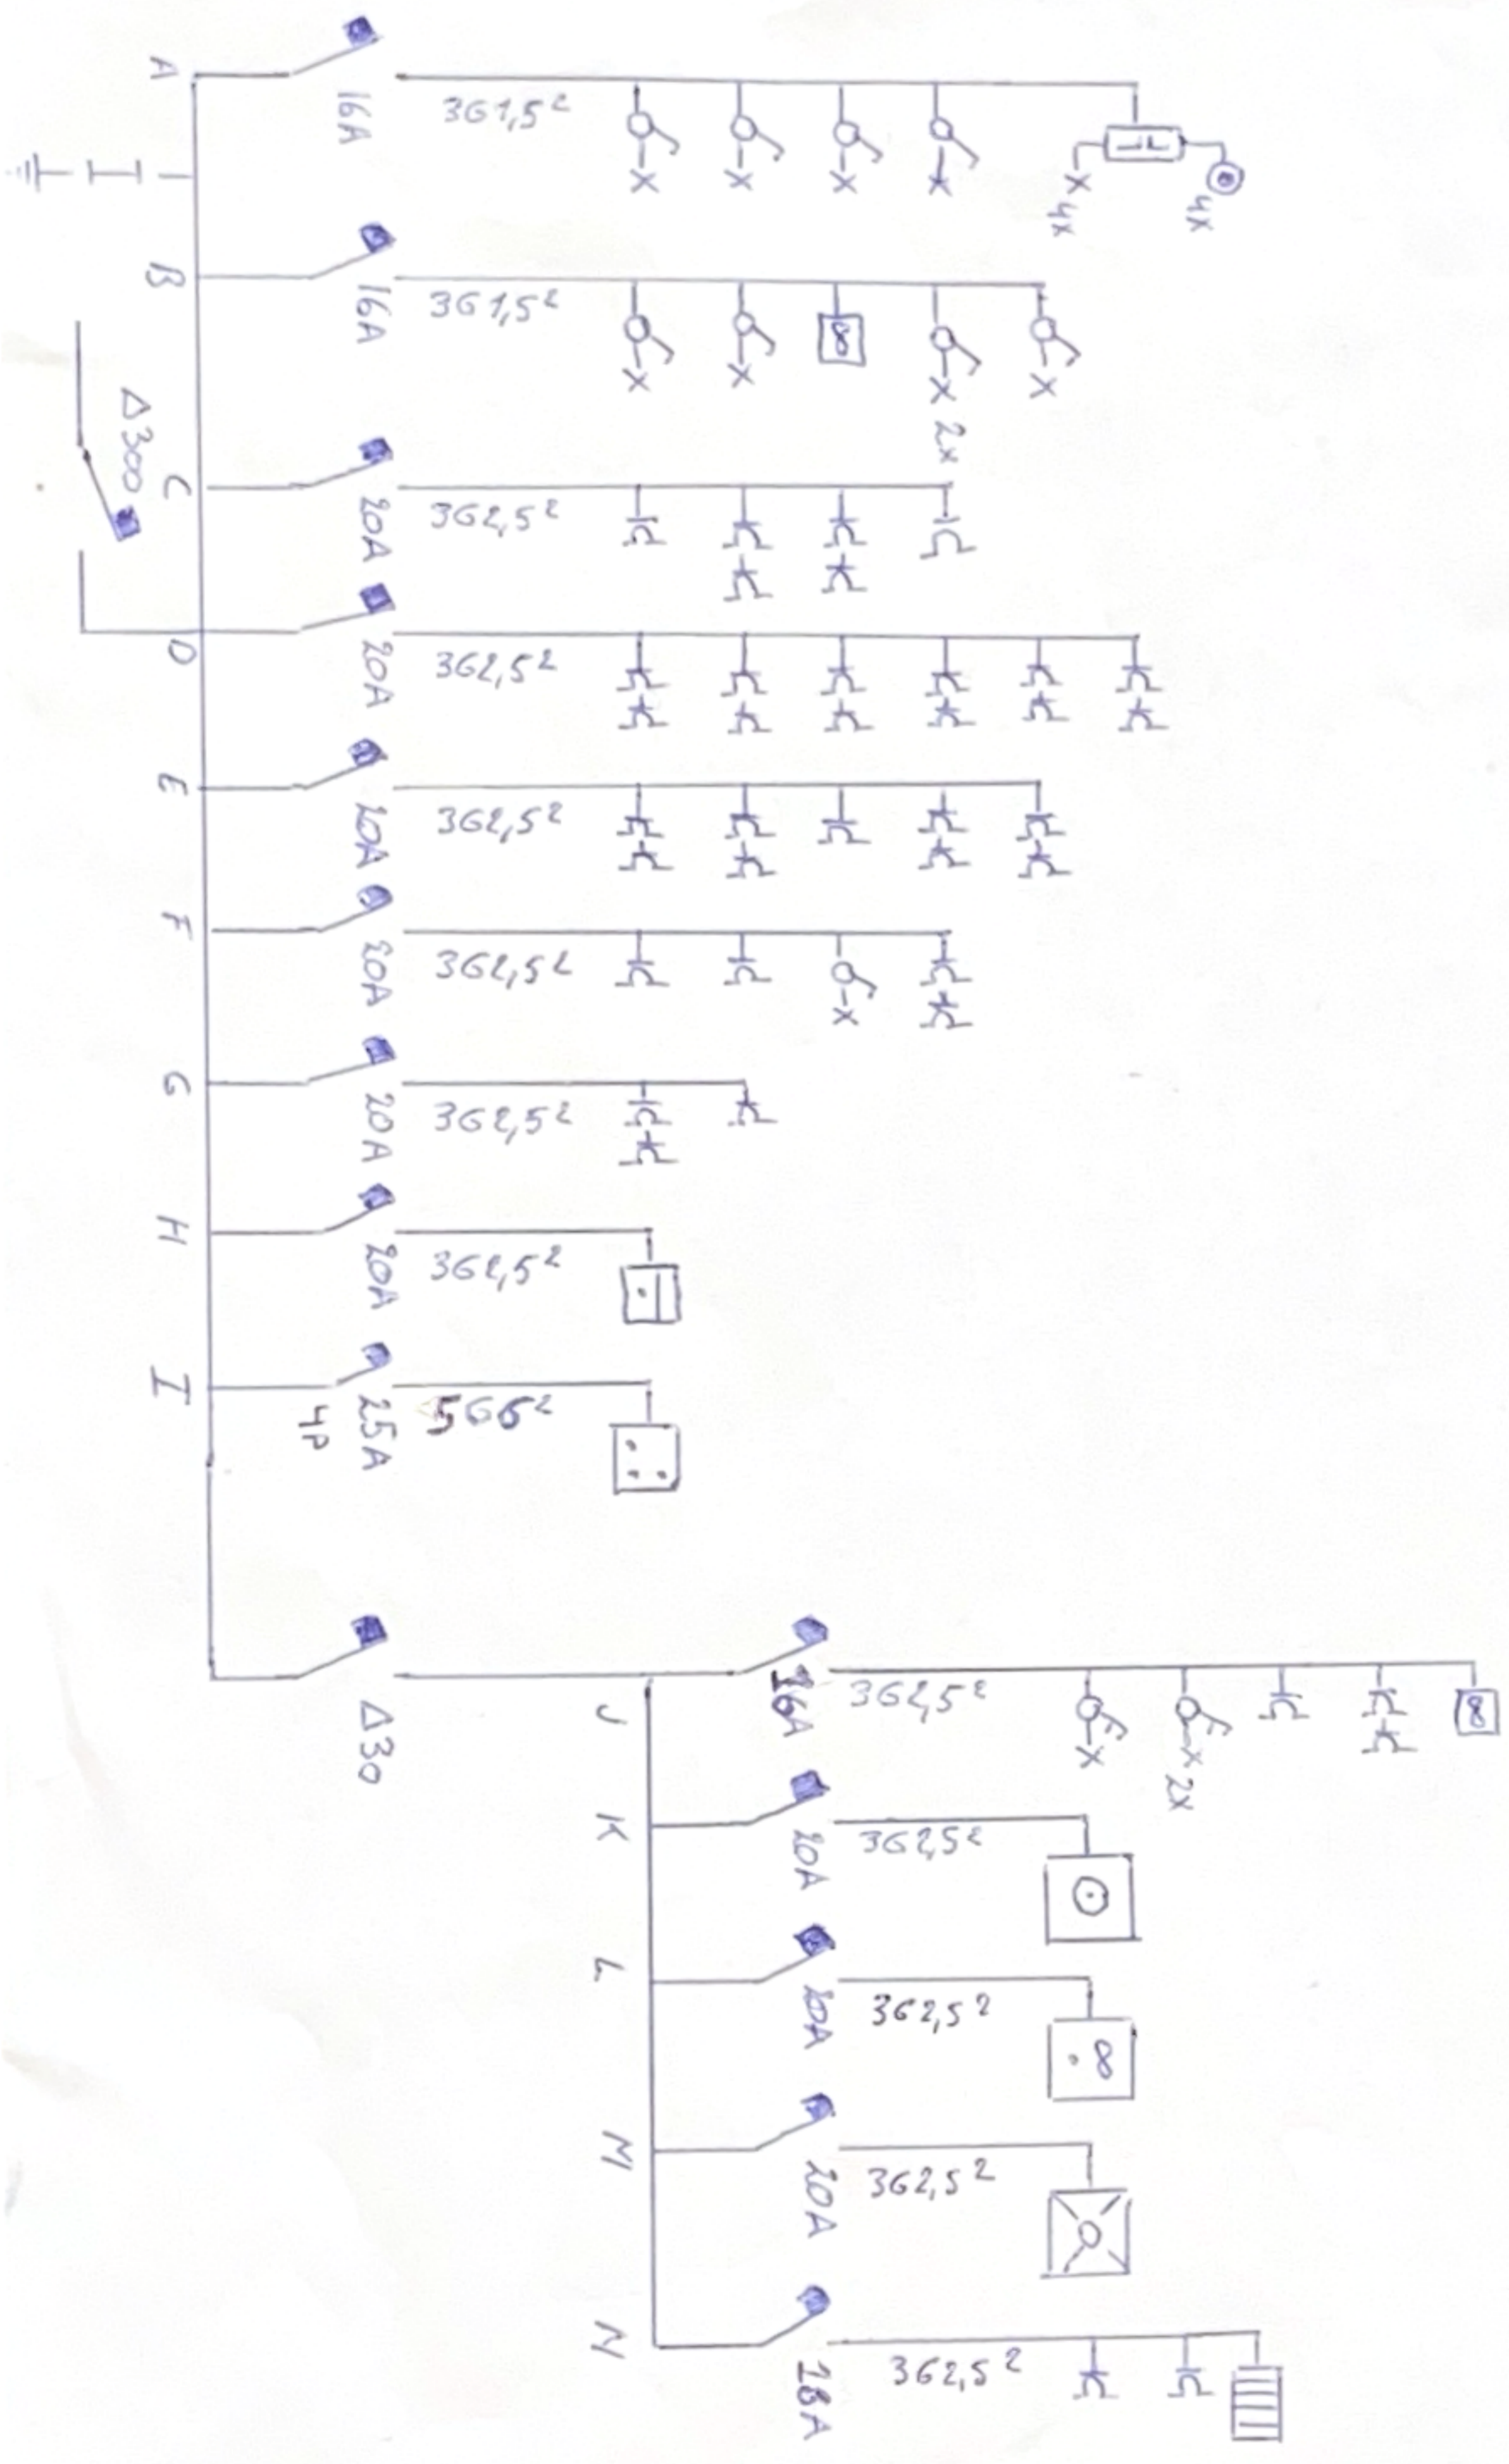 A
16A
3G1,5²
4x
4x
B
16A
3G1,5²
2x
Δ300
C
20A
3G2,5²
D
20A
3G2,5²
E
20A
3G2,5²
F
20A
3G2,5²
G
20A
3G2,5²
H
20A
3G2,5²
I
4P
25A
5G6²
Δ30
J
16A
3G2,5²
2x
K
20A
3G2,5²
L
20A
3G2,5²
M
20A
3G2,5²
N
3G2,5²